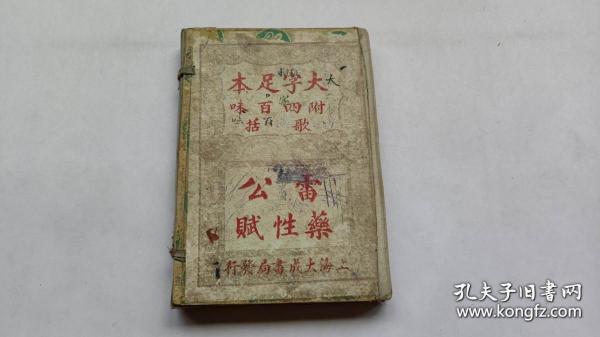 大字足本
附四百味
歌括
雷公
藥性賦
上海大成書局發行
孔夫子旧书网
www.kongfz.com